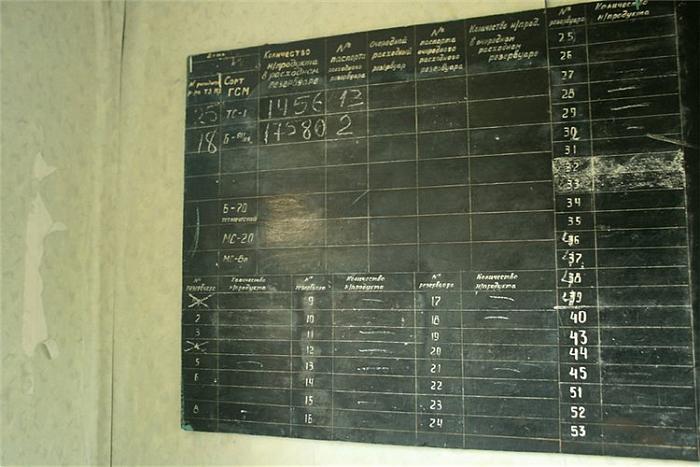 Количество н/продукта в расходном резервуаре
№ паспорта расходного резервуара
Очередной расходный резервуар
№ паспорта очередного расходного резервуара
Количество н/прод. в очередном расходном резервуаре
№ резервуара
Количество н/продукта
Сорт ГСМ
25 ТС-1 1456 13
18 Б- 17580 2
Б-70
МС-20
МС-8п
25
26
27
28
29
30
31
32
33
34
35
36
37
38
39
40
43
44
45
51
52
53
№ резервуара
Количество н/продукта
№ резервуара
Количество н/продукта
№ резервуара
Количество н/продукта
9 17
2 10 18
3 11 19
4 12 20
5 13 21
6 14 22
15 23
8 16 24